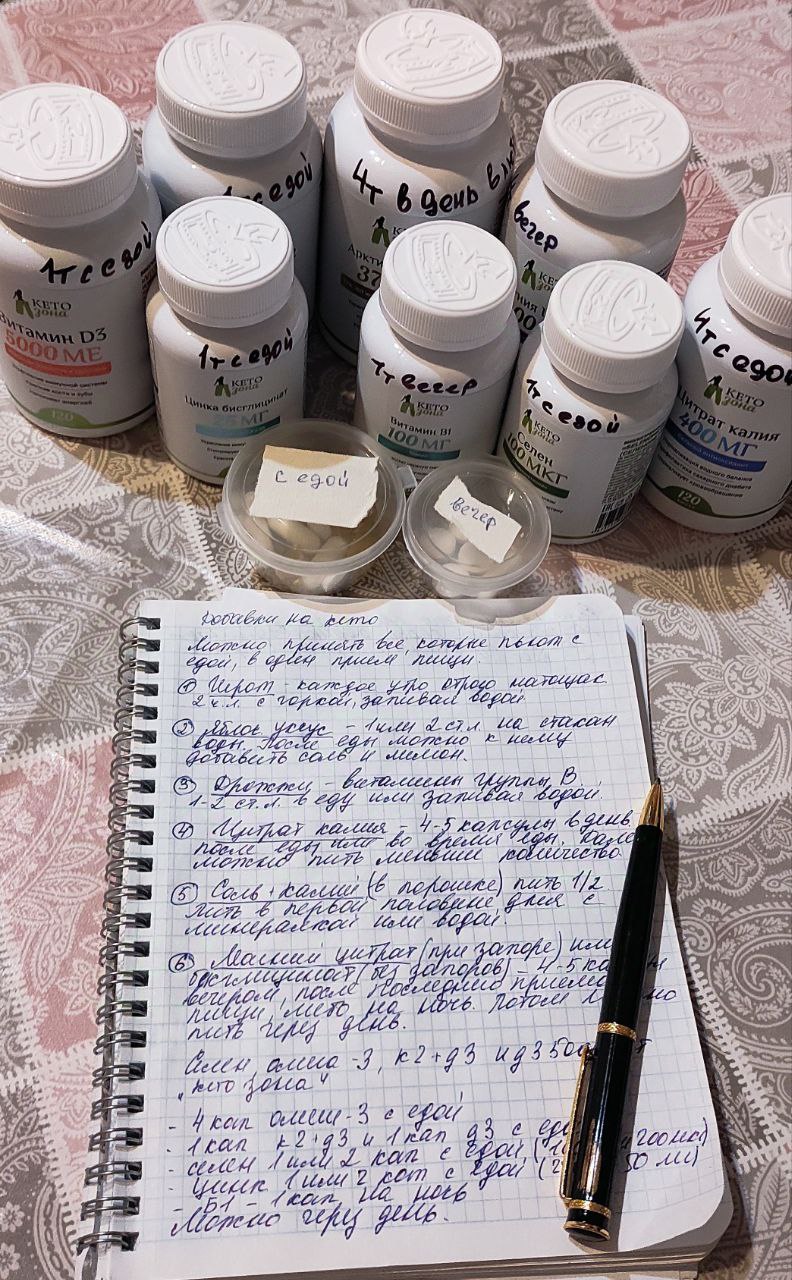 1т с едой
КЕТО
зона
Витамин D3
5000 МЕ
120
1т с едой
1т с едой
КЕТО
зона
Цинка бисглицинат
25 МГ
4т в день
Аркти
37
1т вечер
КЕТО
зона
Витамин B1
100 МГ
вечер
1т с едой
КЕТО
зона
Селен
100 МКГ
4т с едой
КЕТО
зона
Цитрат калия
400 МГ
120
с едой
вечер
Добавки на кето
Можно принять все которые пьют с
едой, в один прием пищи.
① Шрот - каждое утро строго натощак
2 ч.л. с горкой, запивая водой
② Яблоч уксус - 1 или 2 ст.л. на стакан
воды. После еды можно к нему
добавить соль и лимон.
③ Дрожжи - витамины группы В
1-2 ст.л. в еду или запивая водой
④ Цитрат калия 4-5 капсулы в день
после еды или во время еды.
можно пить меньшее количество
⑤ Соль + калий (в порошке) пить 1/2
Пить в первой половине дня с
минералкой или водой.
⑥ Магний цитрат (при запоре) или
бисглицинат (без запоров) - 4-5
вечером, после последнего приема
пищи, на ночь. Потом
пить через день.
Селен, омега-3, к2+д3 и д3
"кето зона"
- 4 кап омеги-3 с едой
- 1 кап к2+д3 и 1 кап д3 с
- селен 1 или 2 кап с едой
- цинк 1 или 2 кап с едой
- Б1 - 1 кап на ночь
Можно через день.